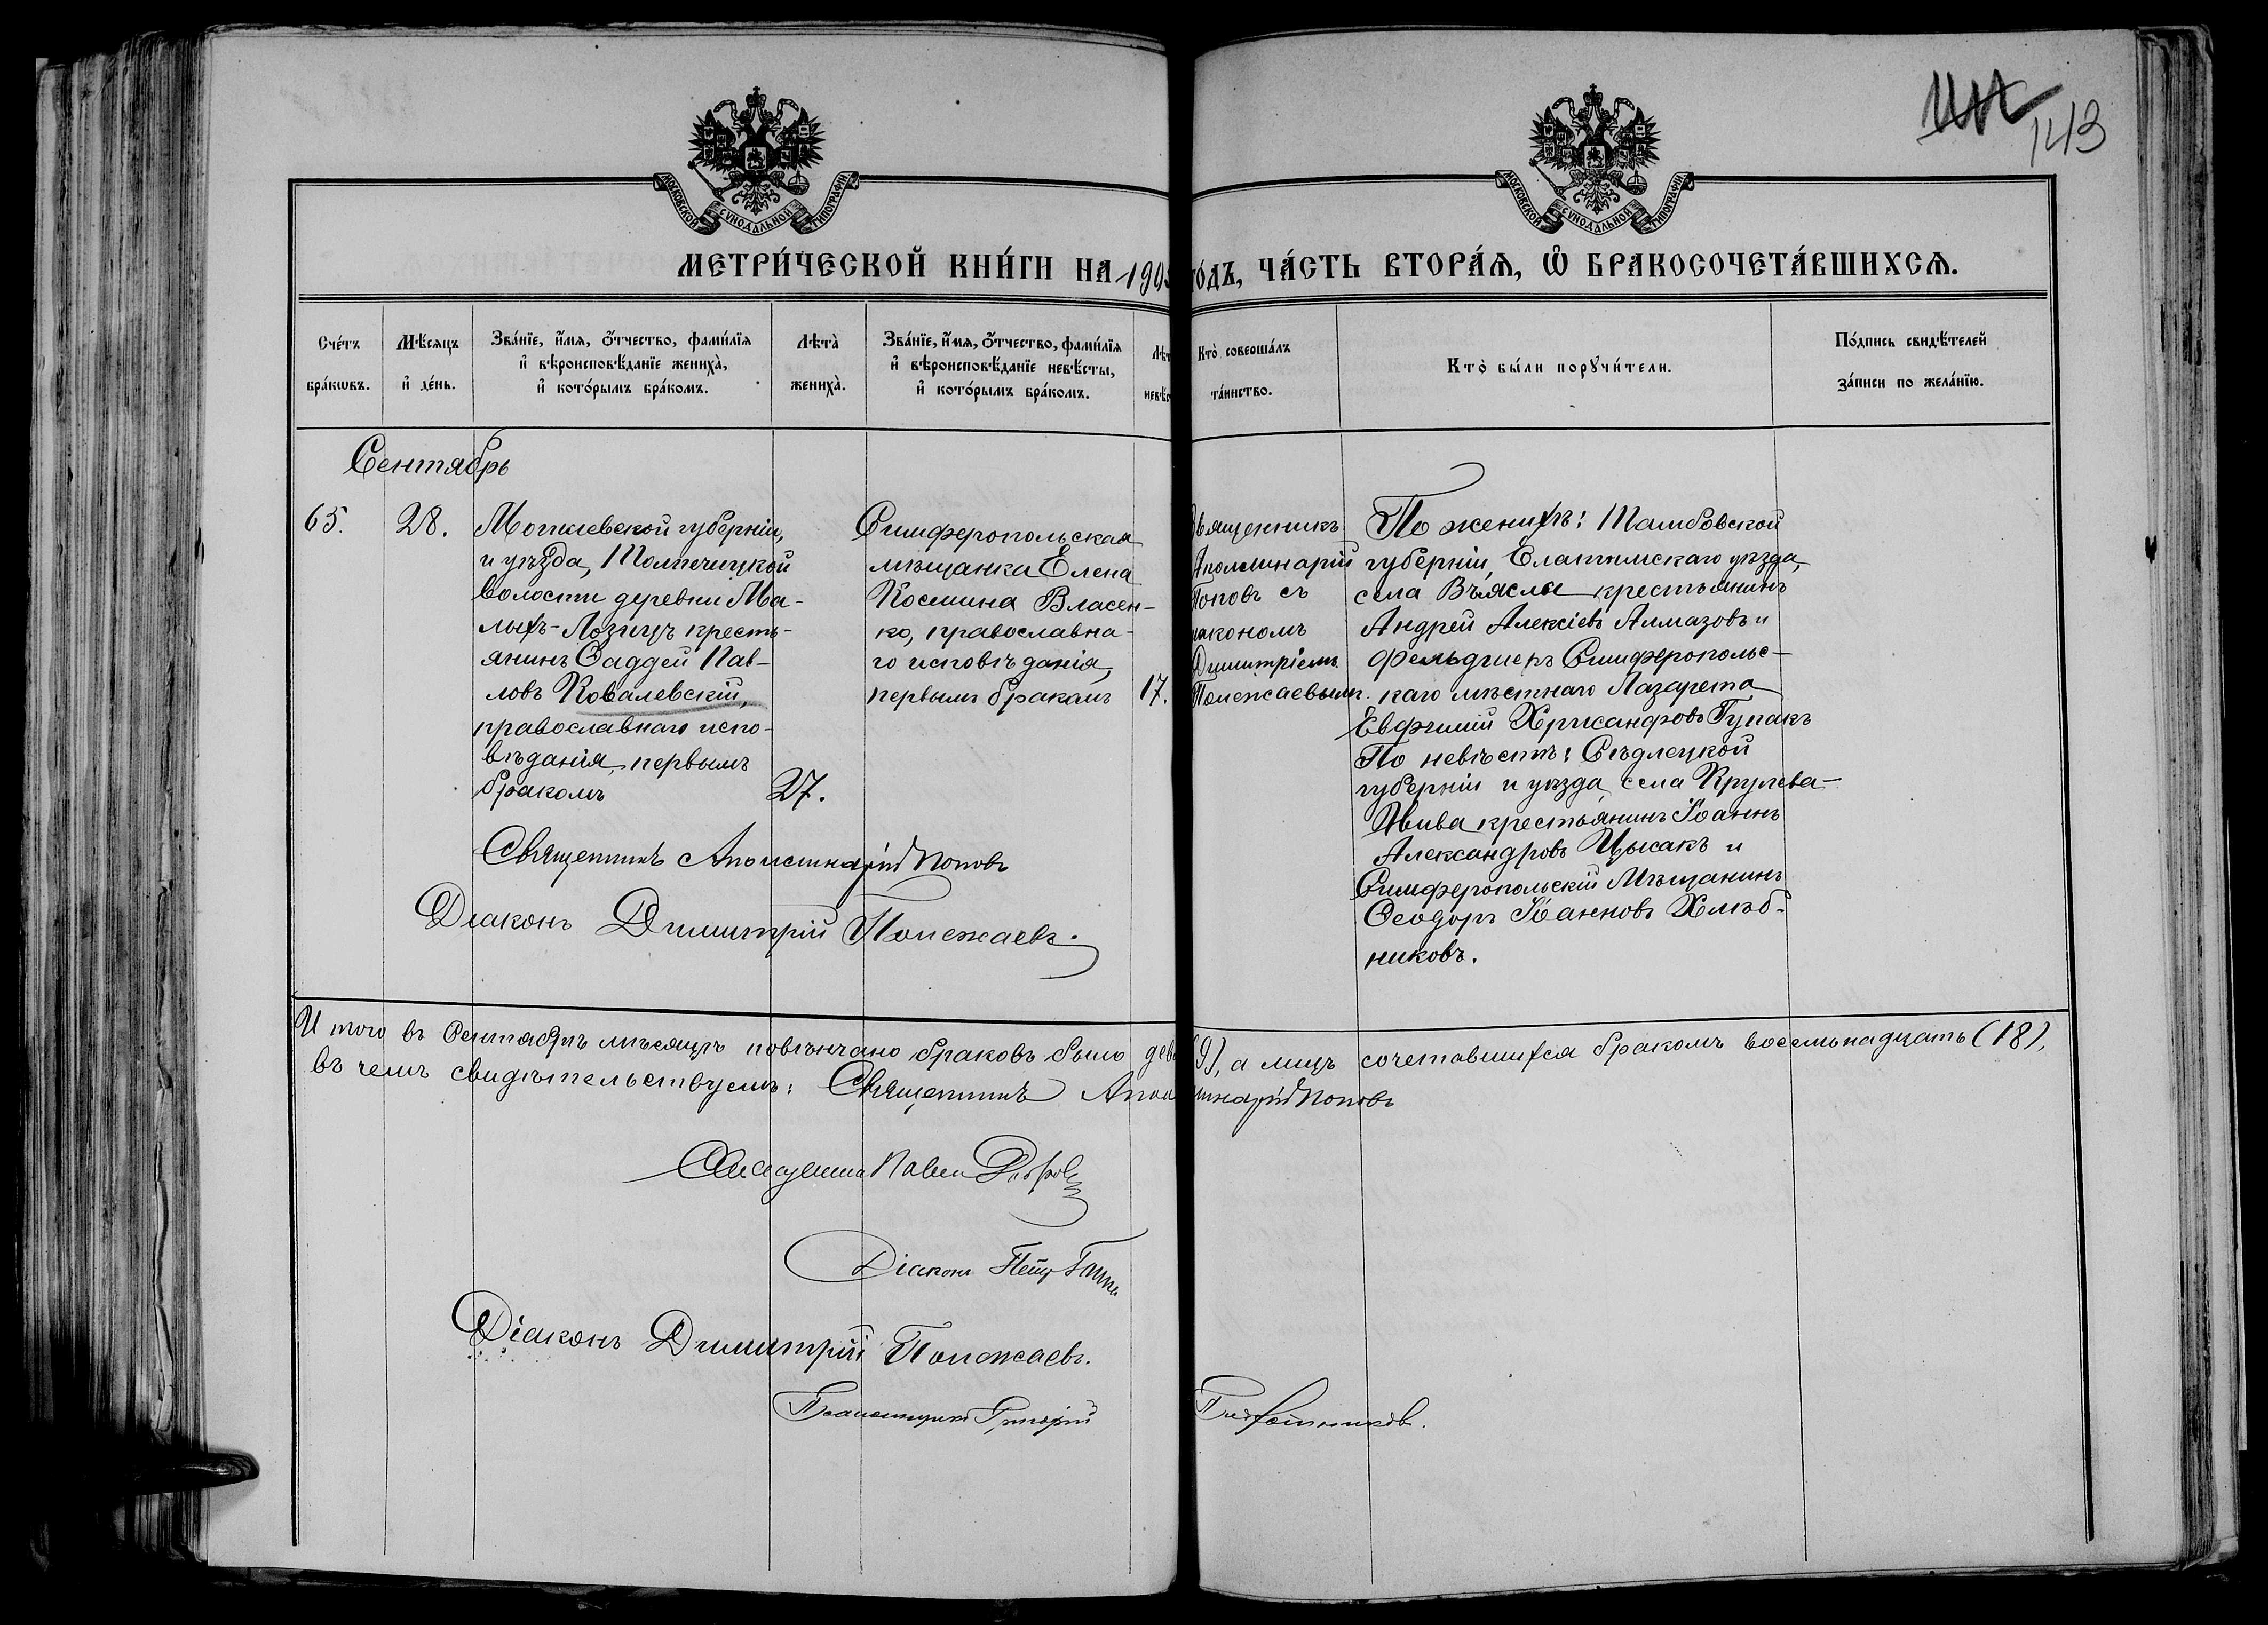 143
МОСКОВСКОЙ СѴНОДАЛЬНОЙ ТИПОГРАФІИ
МОСКОВСКОЙ СѴНОДАЛЬНОЙ ТИПОГРАФІИ
МЕТРИ́ЧЕСКОЙ КНИ́ГИ НА 190
го́дъ, ЧА́СТЬ ВТОРА́Ѧ, Ѡ҆ БРАКОСОЧЕТА́ВШИХСѦ.
Сче́тъ бра́кѡвъ.
Мѣ́сяцъ и҆ де́нь.
Зва́нїе, и҆́мя, ѻ҆́тчество, фами́лїя
и҆ вѣроисповѣ́данїе жениха̀,
и҆ кото́рымъ бра́комъ.
Лѣта̀ жениха̀.
Зва́нїе, и҆́мя, ѻ҆́тчество, фами́лїя
и҆ вѣроисповѣ́данїе невѣ́сты,
и҆ кото́рымъ бра́комъ.
Кто̀ соверша́лъ
та́инство.
Кто̀ бы́ли порꙋчи́тели.
По́дпись свидѣ́телей
за́писи по жела́нїю.
Сентябрь
65.
28.
Могилевской губерніи,
и уѣзда, Толпечицкой
волости деревни Ма-
лыхъ-Лозицъ кресть-
янинъ Ѳаддей Пав-
ловъ Ковалевскій,
православнаго испо-
вѣданія, первымъ
бракомъ
27.
Симферопольская
мѣщанка Елена
Космина Власен-
ко, православна-
го исповѣданія,
первымъ бракомъ
17.
Священникъ
Аполлинарій
Поповъ съ
діакономъ
Димитріемъ
Полежаевымъ.
По женихѣ: Тамбовской
губерніи, Елатомскаго уѣзда,
села Вьяслы крестьянинъ
Андрей Алексіевъ Алмазовъ и
фельдшеръ Симферопольс-
каго мѣстнаго Лазарета
Евфимій Хрисанфовъ Гупакъ
По невѣстѣ: Сѣдлецкой
губерніи и уѣзда, села Крулева-
Нива крестьянинъ Іоаннъ
Александровъ Цысакъ и
Симферопольскій Мѣщанинъ
Ѳеодоръ Іоанновъ Хлѣб-
никовъ.
Священникъ Аполлинарій Поповъ
Діаконъ Димитрій Полежаевъ.
Итого въ Сентябрѣ мѣсяцѣ повѣнчано браковъ было дев (9), а лицъ сочетавшихся бракомъ восемьнадцать (18),
въ чемъ свидѣтельствуемъ: Священникъ Аполлинарій Поповъ
Діаконъ Петръ
Діаконъ Димитрій Полежаевъ.
Псаломщикъ Григорій